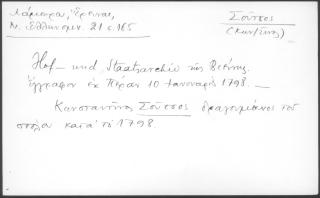 Λάμπρου, Σπυρ.,
Ν. Ελληνομν. 21 σ. 165
Σοῦτσος
(Κων/τῖνος)
Hof – und Staatsarchiv τῆς Βιέννης.
Ἔγγραφον ἐκ Πέραν 10 Ἰανουαρ. 1798. —
Κωνσταντῖνος Σοῦτσος δραγουμάνος τοῦ
στόλου κατὰ τὸ 1798.